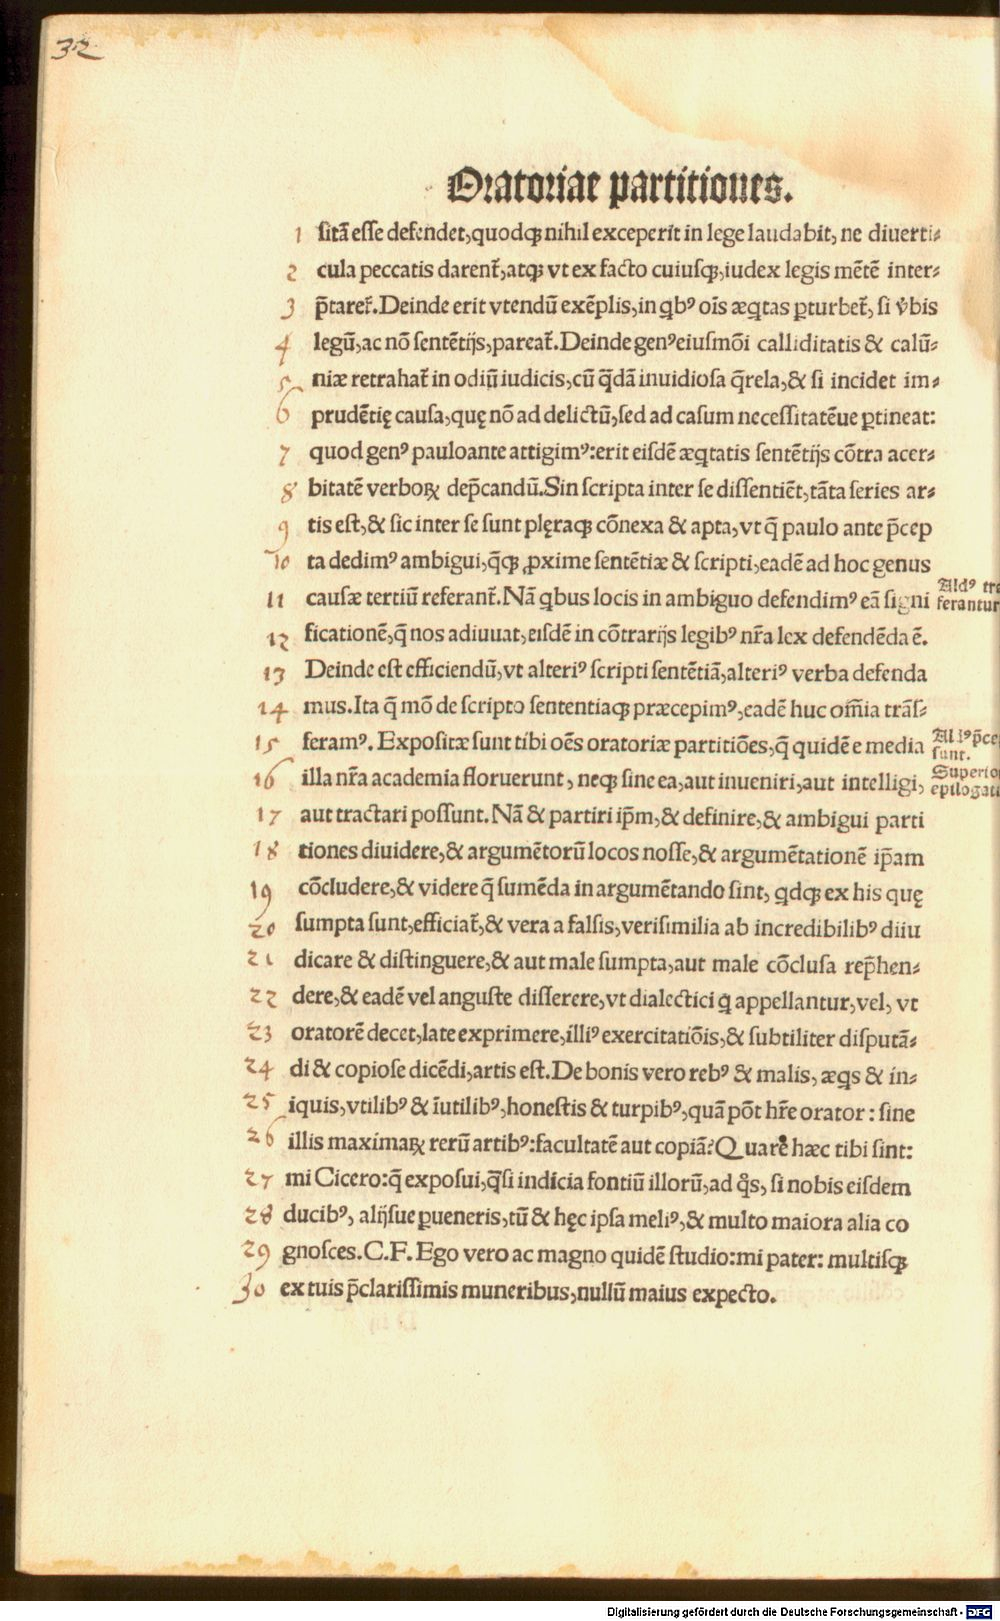 32
Oratoriae partitiones.
1 sitā esse defendet, quodqꝫ nihil exceperit in lege laudabit, ne diuerti⸗
2 cula peccatis darent̃, atqꝫ vt ex facto cuiusqꝫ, iudex legis mētē inter⸗
3 p̄taret̃. Deinde erit vtendū exēplis, in qbꝰ oīs æqtas ꝑturbet̃, si v̓bis
4 legū, ac nō sentētijs, pareat̃. Deinde genꝰ eiusmōi calliditatis & calū⸗
5 niæ retrahat̃ in odiū iudicis, cū q̄dā inuidiosa q̄rela, & si incidet im⸗
6 prudētię causa, quę nō ad delictū, sed ad casum necessitatēue ꝑtineat:
7 quod genꝰ pauloante attigimꝰ: erit eisdē æqtatis sentētijs cōtra acer⸗
8 bitatē verboꝝ dep̄candū. Sin scripta inter se dissentiēt, tāta series ar⸗
9 tis est, & sic inter se sunt plęraqꝫ cōnexa & apta, vt q̄ paulo ante p̄cep
10 ta dedimꝰ ambigui, q̄qꝫ ꝓxime sentētiæ & scripti, eadē ad hoc genus
11 causæ tertiū referant̃. Nā qbus locis in ambiguo defendimꝰ eā signi
Aldꝰ tra
ferantur
12 ficationē, q̄ nos adiuuat, eisdē in cōtrarijs legibꝰ nr̄a lex defendēda ē.
13 Deinde est efficiendū, vt alteriꝰ scripti sentētiā, alteriꝰ verba defenda
14 mus. Ita q̄ mō de scripto sententiaqꝫ præcepimꝰ, eadē huc om̄ia trās⸗
15 feramꝰ. Expositæ sunt tibi oēs oratoriæ partitiōes, q̄ quidē e media
Aldꝰ p̄ce
sunt.
16 illa nr̄a academia floruerunt, neqꝫ sine ea, aut inueniri, aut intelligi,
Superio
epilogati
17 aut tractari possunt. Nā & partiri ip̄m, & definire, & ambigui parti
18 tiones diuidere, & argumētorū locos nosse, & argumētationē ip̄am
19 cōcludere, & videre q̄ sumēda in argumētando sint, qdqꝫ ex his quę
20 sumpta sunt, efficiat̃, & vera a falsis, verisimilia ab incredibilibꝰ diiu
21 dicare & distinguere, & aut male sumpta, aut male cōclusa rep̄hen⸗
22 dere, & eadē vel anguste disserere, vt dialectici q appellantur, vel, vt
23 oratorē decet, late exprimere, illiꝰ exercitatiōis, & subtiliter disputā⸗
24 di & copiose dicēdi, artis est. De bonis vero rebꝰ & malis, æqs & in⸗
25 iquis, vtilibꝰ & īutilibꝰ, honestis & turpibꝰ, quā pōt hr̄e orator: sine
26 illis maximaꝝ rerū artibꝰ: facultatē aut copiā? Quare hæc tibi sint:
27 mi Cicero: q̄ exposui, q̄si indicia fontiū illorū, ad q̊s, si nobis eisdem
28 ducibꝰ, alijsue ꝑueneris, tū & hęc ipsa meliꝰ, & multo maiora alia co
29 gnosces. C. F. Ego vero ac magno quidē studio: mi pater: multisqꝫ
30 ex tuis p̄clarissimis muneribus, nullū maius expecto.
Digitalisierung gefördert durch die Deutsche Forschungsgemeinschaft - DFG